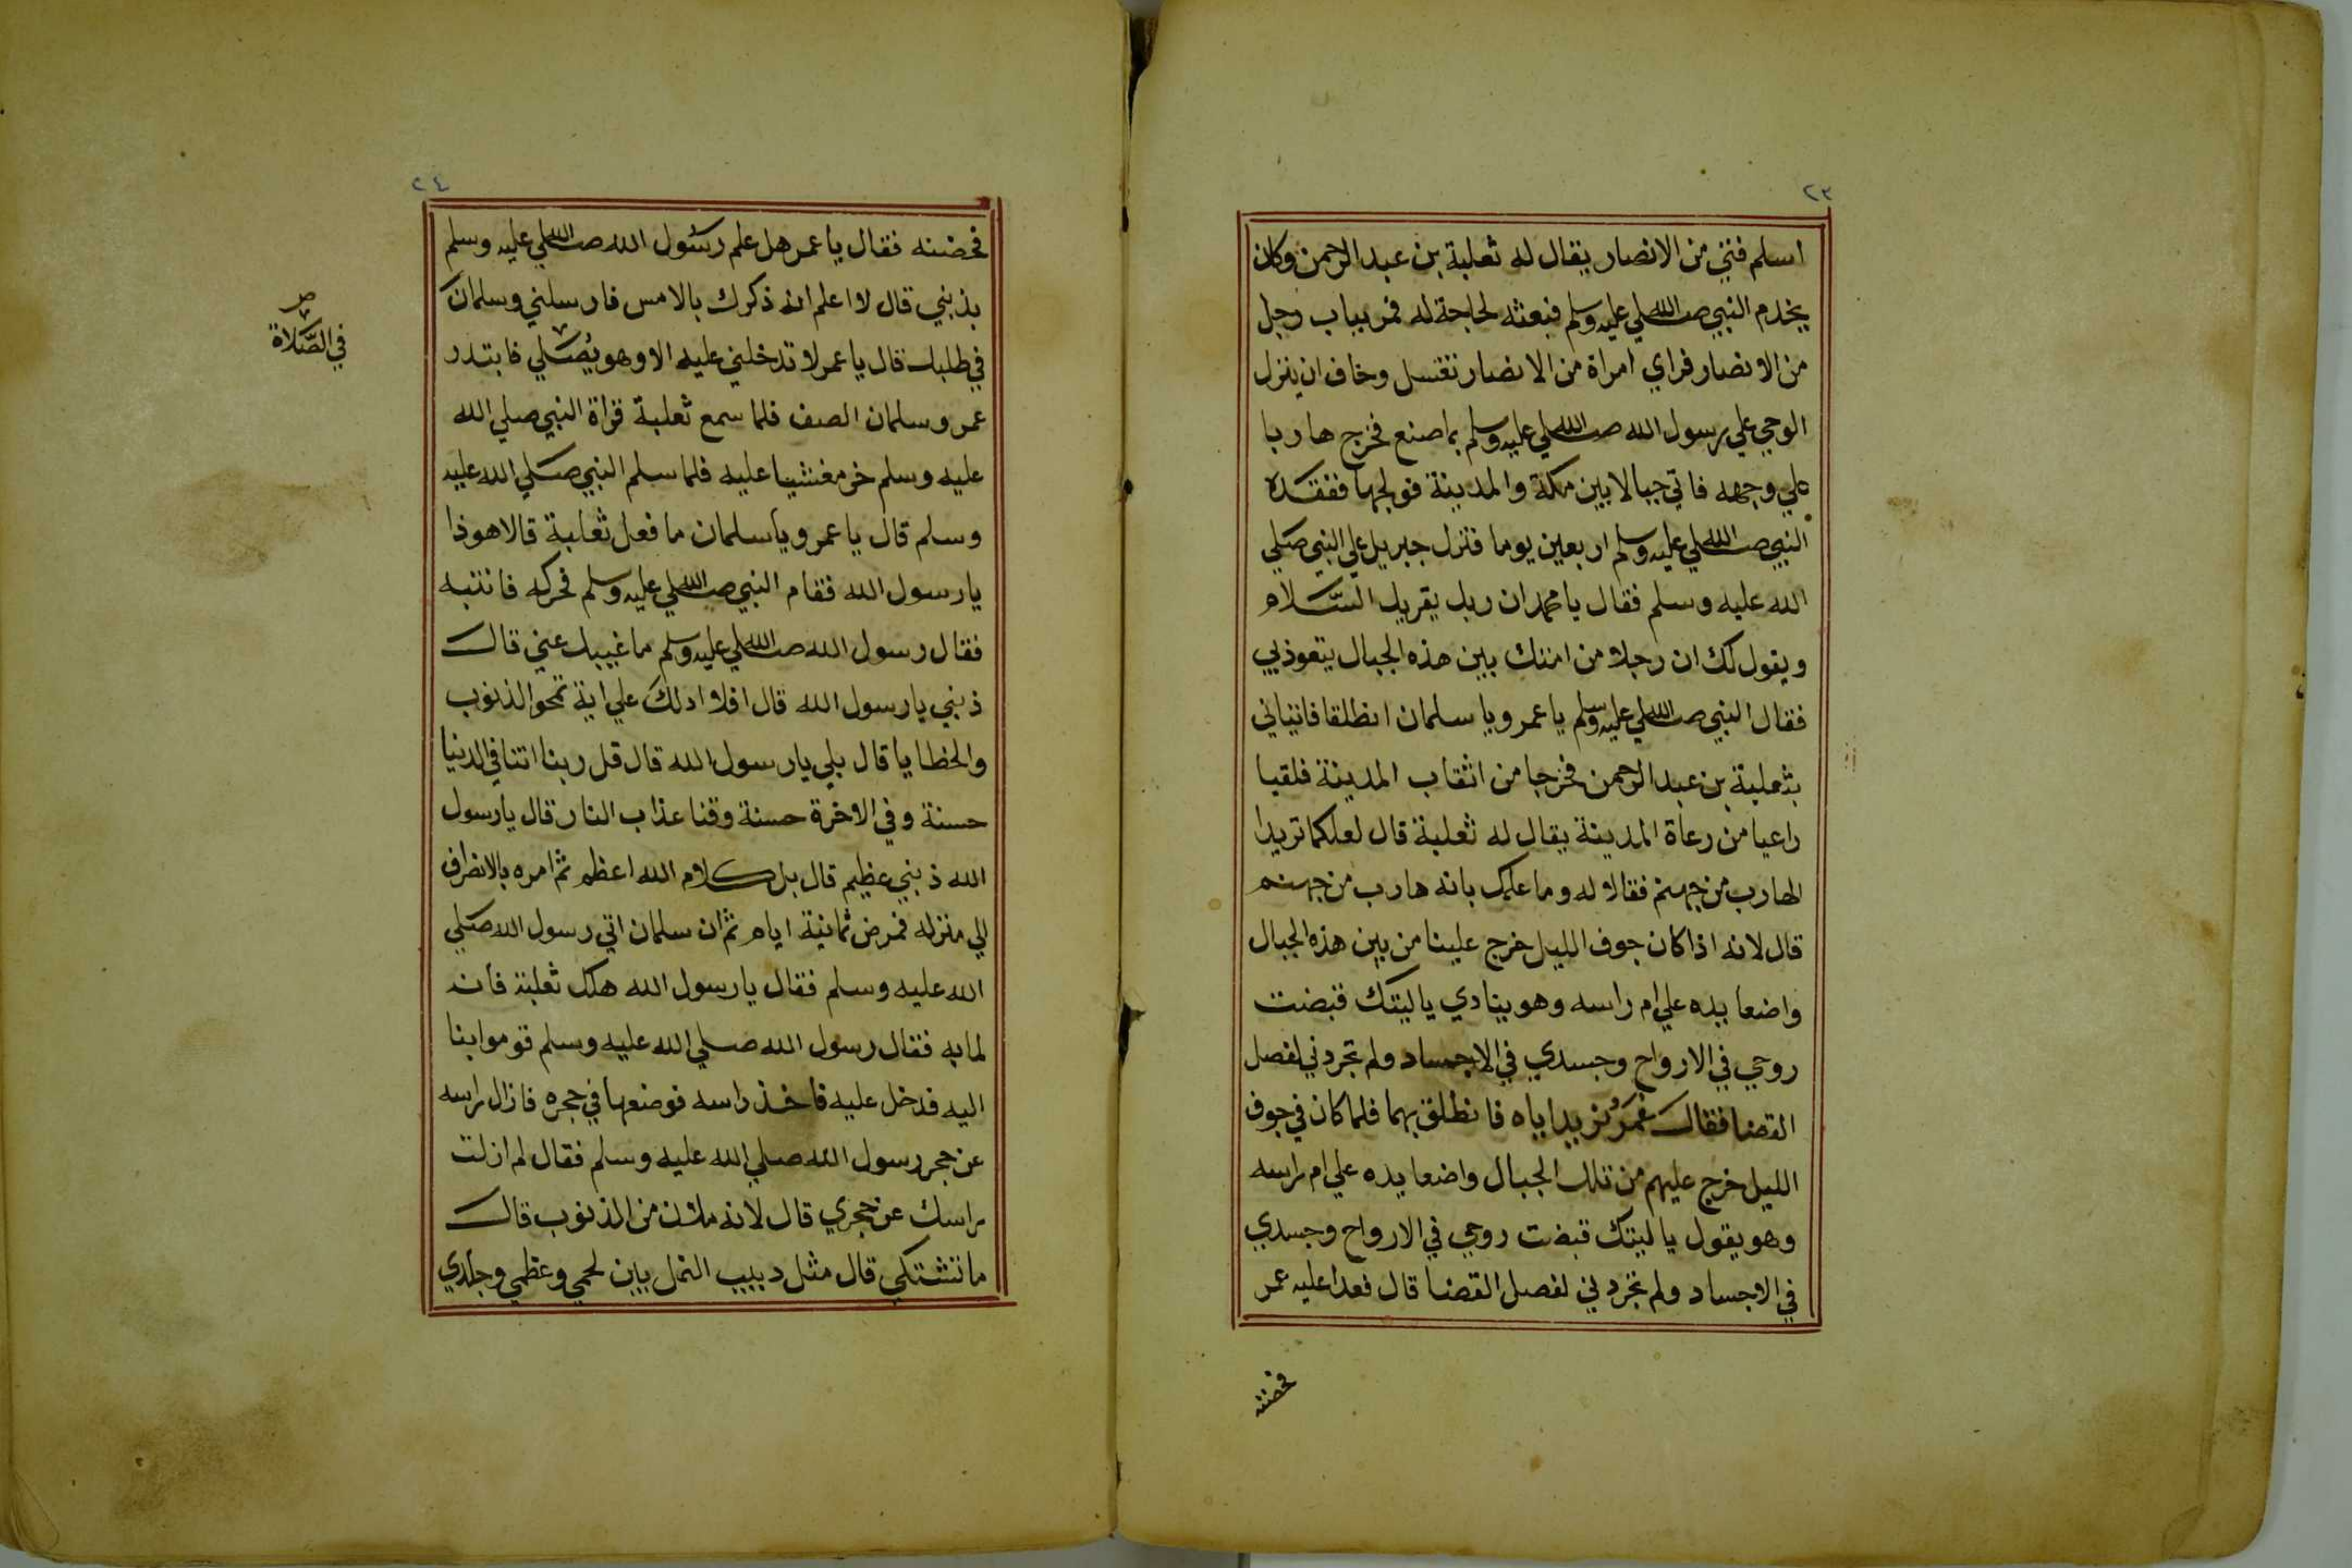 ٢٣
اسلم فتي من الانصار يقال له ثعلبة بن عبد الرحمن وكان
يخدم النبي صلي الله عليه وسلم فبعثه لحاجة له فمر بباب رجل
من الانصار فراي امراة من الانصار تغتسل وخاف ان ينزل
الوحي علي رسول الله صلي الله عليه وسلم بما صنع فخرج هاربا
علي وجهه فاتي جبالا بين مكة والمدينة فولجها ففقده
النبي صلي الله عليه وسلم اربعين يوما فنزل جبريل علي النبي صلي
الله عليه وسلم فقال يا محمد ان ربك يقريك السلام
ويقول لك ان رجلا من امتك بين هذه الجبال يتعوذ بي
فقال النبي صلي الله عليه وسلم يا عمر ويا سلمان انطلقا فاتياني
بثعلبة بن عبد الرحمن فخرجا من اثقاب المدينة فلقيا
راعيا من رعاة المدينة يقال له ثعلبة قال لعلكما تريدا
الهارب من جهنم فقالا له وما علمك بانه هارب من جهنم
قال لانه اذا كان جوف الليل خرج علينا من بين هذه الجبال
واضعا يده علي ام راسه وهو ينادي ياليتك قبضت
روحي في الارواح وجسدي في الاجساد ولم تجردني لفصل
القضا فقال عمر نريد اياه فانطلق بهما فلما كان في جوف
الليل خرج عليهم من تلك الجبال واضعا يده علي ام راسه
وهو يقول ياليتك قبضت روحي في الارواح وجسدي
في الاجساد ولم تجردني لفصل القضا قال فعدا عليه عمر
فحضنه
٢٤
فحضنه فقال يا عمر هل علم رسول الله صلي الله عليه وسلم
بذنبي قال لا اعلم انه ذكرك بالامس فارسلني وسلمان
في طلبك قال يا عمر لا تدخلني عليه الا وهو يُصَلي فابتدر
عمر وسلمان الصف فلما سمع ثعلبة قراة النبي صلي الله
عليه وسلم خر مغشيا عليه فلما سلم النبي صلي الله عليه
وسلم قال يا عمر ويا سلمان ما فعل ثعلبة قالا هو ذا
يا رسول الله فقام النبي صلي الله عليه وسلم فحركه فانتبه
فقال رسول الله صلي الله عليه وسلم ما غيبك عني قال
ذنبي يا رسول الله قال افلا ادلك علي اية تمحو الذنوب
والخطايا قال بلي يا رسول الله قال قل ربنا اتنا في الدنيا
حسنة وفي الاخرة حسنة وقنا عذاب النار قال يا رسول
الله ذنبي عظيم قال بل كلام الله اعظم ثم امره بالانصراف
الي منزله فمرض ثمانية ايام ثم ان سلمان اتي رسول الله صلي
الله عليه وسلم فقال يا رسول الله هلك ثعلبة فانه
لما به فقال رسول الله صلي الله عليه وسلم قوموا بنا
اليه فدخل عليه فاخذ راسه فوضعها في حجره فازال راسه
عن حجر رسول الله صلي الله عليه وسلم فقال لم ازلت
راسك عن حجري قال لانه ملئن من الذنوب قال
ما تشتكي قال مثل دبيب النمل بين لحمي وعظمي وجلدي
ص
في الصَّلاة